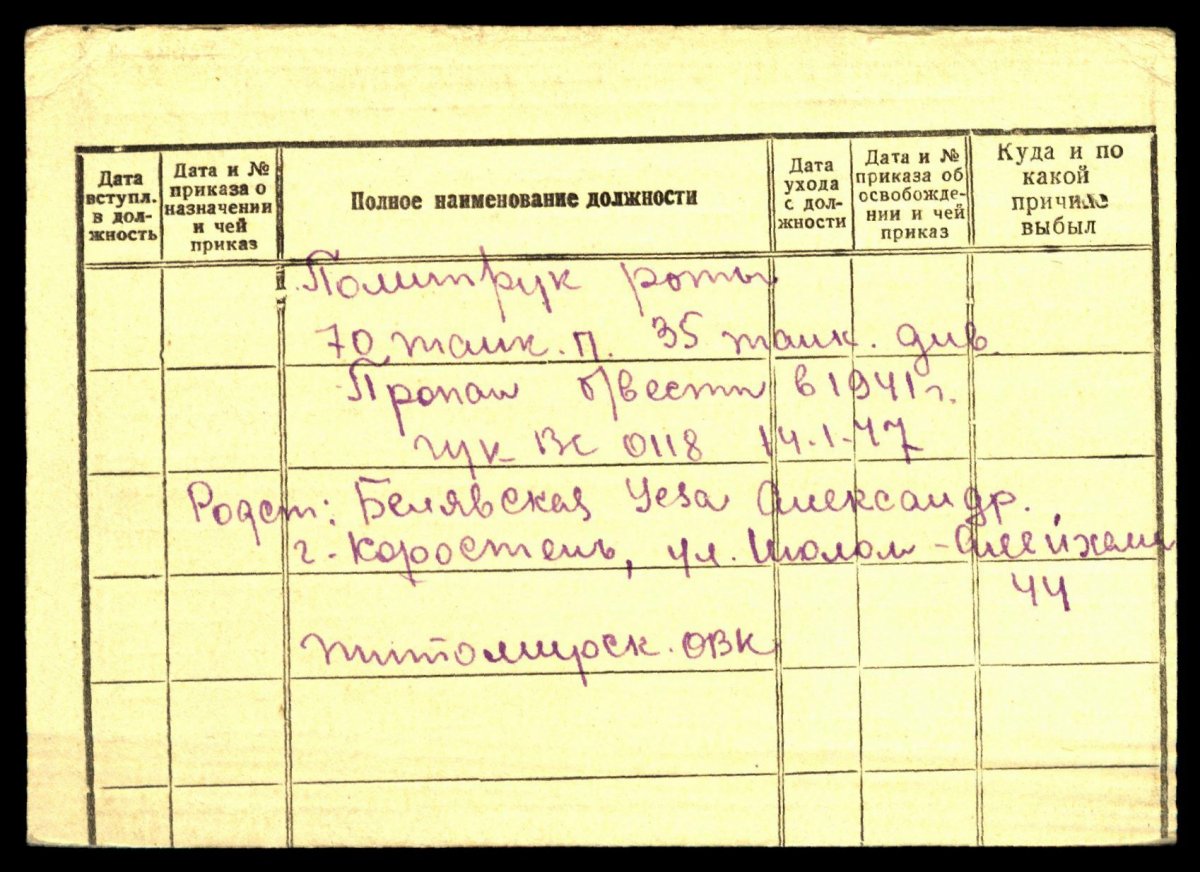 Дата вступл. в дол- жность
Дата и № приказа о назначении и чей приказ
Полное наименование должности
Дата ухода с дол- жности
Дата и № приказа об освобожде- нии и чей приказ
Куда и по какой причине выбыл
Политрук роты
70 танк. п. 35 танк. див.
Пропал б/вести в 1941 г.
гук ВС 0118 14.1.47
Родст: Белявская Александр.
г. Коростень, ул. Шолом-Алейхема
44
Житомирск. ОВК